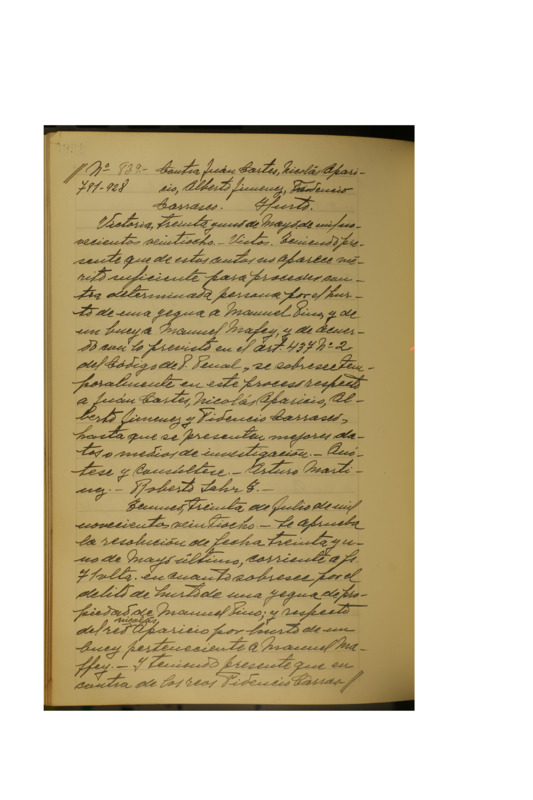 // Nº 829.- Contra Juan Cartes, Nicolás Apari-
781-928 cio, Alberto Jimenez, Fidencio
Carrasco. Hurto.
Victoria, treinta y uno de Mayo de mil no-
vecientos veintiocho.- Vistos. Teniendo pre-
sente que de estos autos no aparece mé-
rito suficiente para proceder con-
tra determinada persona por el hur-
to de una yegua a Manuel Pino, y de
un buey a Manuel Maffey, y de acuer-
do con lo previsto en el art. 437 Nº 2
del Código de P. Penal, se sobresee tem-
poralmente en este proceso respecto
a Juan Cartes, Nicolás Aparicio, Al-
berto Jimenez y Fidencio Carrasco,
hasta que se presenten mejores da-
tos o medios de investigación.- Anó-
tese y Consúltese.- Arturo Marti-
nez.- Roberto
Temuco, treinta de Julio de mil
novecientos veintiocho.- Se aprueba
la resolución de fecha treinta y u-
no de Mayo último, corriente a fs.
71 vlta. en cuanto sobresee por el
delito de hurto de una yegua de pro-
piedad de Manuel Pino; y respecto
del reo Nicolás Aparicio por hurto de un
buey perteneciente a Manuel Ma-
ffey.- Y teniendo presente que en
contra de los reos Fidencio Carras //